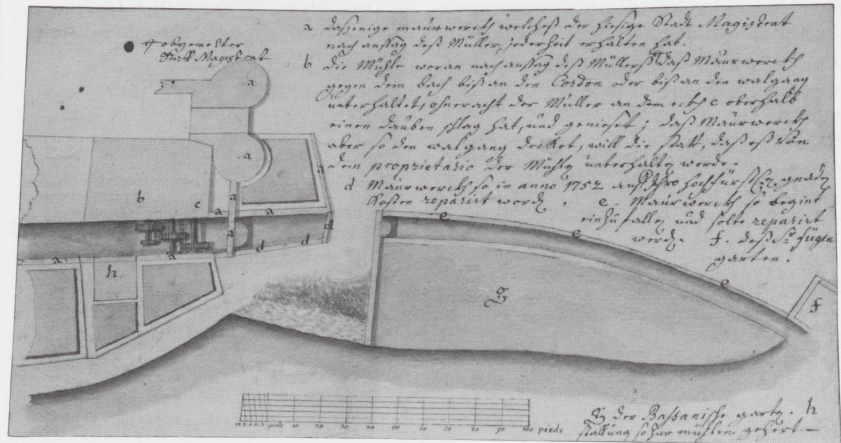 † obgemelter
Statt Magistrat
a dasjenige maurwerckh welcheß der hiesige Stadt Magistrat
nach ansag deß Müller, jederheit erhalten hat.
b die Mühle woran nach ansag deß Müllerß Daß Maurwerckh
gegen dem bach biß an den Cordon oder biß an den walgang
unterhaltet, ohneracht der Müller an dem eckh c oberhalb
einen dauben schlag hat, und genieset; daß Maurwerckh
aber so den walgang decket, will die statt, daß eß von
dem proprietario der Mühle unterhalten werde.
d Maurwerckh so in anno 1752 auf Ihro hochfürstl. gnaden
kosten reparirt worden. e. Maurwerckh so begint
einzufallen und solte reparirt
werden. f. deß Sr. fügen
garten.
a
a
a
b
c
a
a
a
a
d
d
d
a
a
h
e
e
e
g
f
pieds
10 20 30 40 50 60 70 80 90 100 pieds
g der Bassanische garten. h
stallung so zur mühlen gehört.